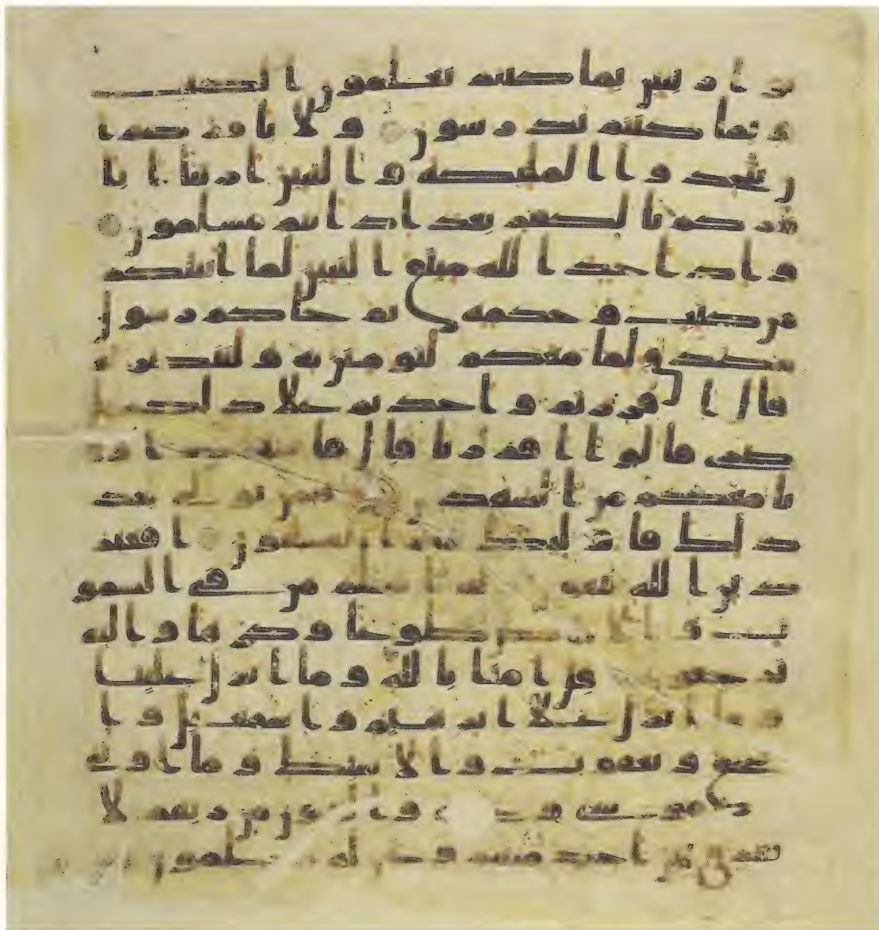 نوا ربنين بما كنتم تعلمون الكتب
وبما كنتم تدرسون ولا يامركم ا
ن تتخذوا الملئكة والنبين اربابا ايا
مركم بالكفر بعد اذ انتم مسلمون
واذ اخذ الله ميثق النبين لما اتيتكم
من كتب وحكمة ثم جاكم رسول
مصدق لما معكم لتومنن به ولتنصرنه
قال ااقررتم واخذتم على ذلكم ا
صرى قالوا اقررنا قال فاشهدوا وا
نا معكم من الشهدين فمن تولى بعد
ذلك فاولئك هم الفسقون افغير
دين الله يبغون وله اسلم من في السمو
ت والارض طوعا وكرها واليه
يرجعون قل امنا بالله وما انزل علينا
وما انزل على ابرهيم واسمعيل وا
سحق ويعقوب والاسبط وما اوتى
موسى وعيسى والنبيون من ربهم لا
نفرق بين احد منهم ونحن له مسلمون